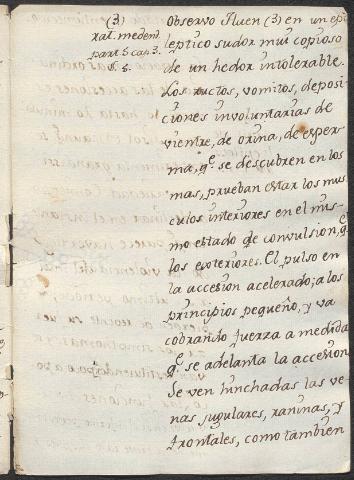 (3)
rat. medend.
part. 5 cap. 3.
§. 5.
Observo Huen (3) en un epi
leptico sudor mui copioso
de un hedor intolerable.
Los ructos, vomitos, deposi
ciones involuntarias de
vientre, de orina, de esper
ma, q.e se descubren en los
mas, prueban estar los mus
culos interiores en el mis-
mo estado de convulsion, q.e
los exteriores. El pulso en
la accesion acelerado; a los
principios pequeño, y va
cobrando fuerza a medida
q.e se adelanta la accesion
Se ven hinchadas las ve
nas jugulares, raninas, y
frontales, como tambien